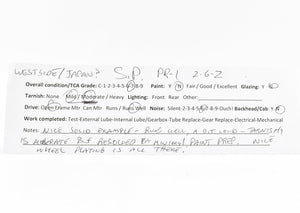 WESTSIDE/JAPAN? S.P. PR-1 2-6-2
Overall condition/TCA Grade: C-1-2-3-4-5-6-7-8-9 Paint: Y N Fair / Good / Excellent Glazing: Y N
Tarnish: None Mild / Moderate / Heavy Lighting: Front Rear Other:
Drive: Open Frame Mtr Can Mtr Runs / Runs Well Noise: Silent-2-3-4-5-6-7-8-9-Ouch! Backhead/Cab: Y N
Work completed: Test-External Lube-Internal Lube/Gearbox-Tube Replace-Gear Replace-Electrical-Mechanical
Notes: NICE SOLID EXAMPLE - RUNS WELL, A BIT LOUD - TARNISH
IS MODERATE BUT RESOLVED BY MINIMAL PAINT PREP. NICE
WHEEL PLATING IS ALL THERE.